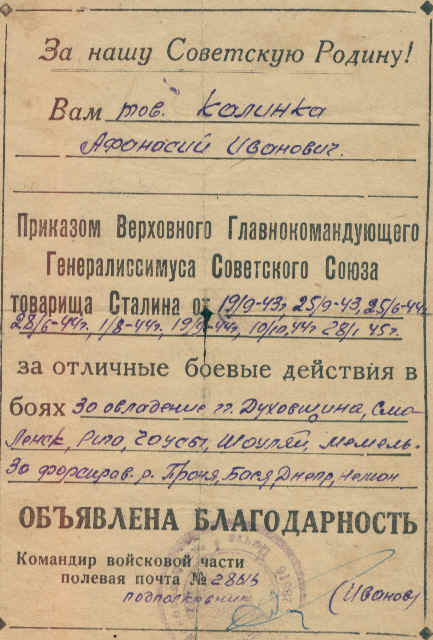 За нашу Советскую Родину!
Вам тов. Калинка
Афанасий Иванович.
Приказом Верховного Главнокомандующего
Генералиссимуса Советского Союза
товарища Сталина от 19/9-43г, 25/9-43, 25/6-44г.
28/6-44г, 1/8-44г, 44г, 10/10.44г 28/1 45г.
за отличные боевые действия в
боях За овладение гг. Духовщина, Смо-
ленск, Чаусы, Шауляй, Мемель.
За форсиров. р. Проня, Бася, Днепр, Неман
ОБЪЯВЛЕНА БЛАГОДАРНОСТЬ
Командир войсковой части
полевая почта №
подполковник (Иванов)